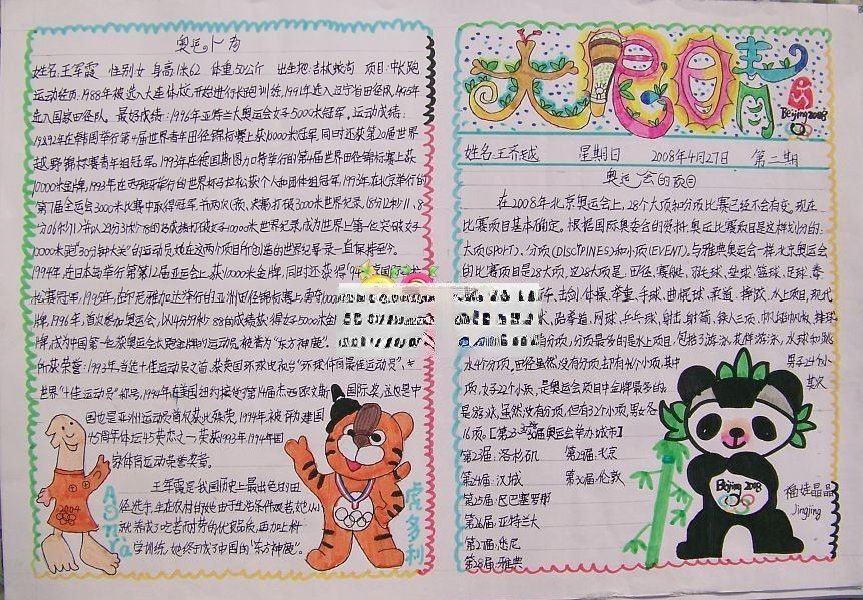 奥运人高
姓名:王军霞 性别:女 身高:1米62 体重:50公斤 出生地:吉林蛟河 项目:中长跑
运动经历:1988年被选入大连体校,开始进行长跑训练,1991年进入辽宁省田径队,1993年
进入国家田径队。最好成绩:1996年亚特兰大奥运会女子5000米冠军。运动成绩:
1992年在韩国举行第4届世界青年田径锦标赛上获10000米冠军,同时还获第20届世界
越野锦标赛青年组冠军。1993年在德国斯图加特举行的第4届世界田径锦标赛上获
10000米金牌,1993年在西班牙举行的世界杯马拉松获个人和团体组冠军。1993年在北京举行的
第7届全运会3000米比赛中取得冠军并两次
10000米跑"30分钟大关"的运动员,她在这两个项目所创造的世界纪录一直保持至今。
1994年,在日本广岛举行第12届亚运会上,获10000米金牌,同时还获得
比赛冠军,1995年,在印尼雅加达举行的亚洲田径锦标赛上
牌,1996年,首次参加奥运会,以4分59秒88的成绩获得女子5000米金
牌,成为中国第一位获奥运会长跑金牌的运动员,被誉为"东方神鹿"。
所获荣誉:1993年,当选十佳运动员之首,获美国环球电视台"环球体育最佳运动员"、
世界"十佳运动员"称号,1994年在美国纽约接受了第14届杰西·欧文斯国际奖,这也是中
国也是亚洲运动员首次获此殊荣,1994年,被评为建国
45周年体坛45英杰之一,荣获1993年、1994年国
家体育运动荣誉奖章。
王军霞是我国历史上最出色的田
径选手,生在农村的她由于生活条件艰苦,她从小
就养成了吃苦而耐劳的优良品质,再加上科
学训练,她终于成了中国的"东方神鹿"。
2004
Asnta
虎多利
大鹿日青
Beijing 2008
姓名:王乔越 星期日 2008年4月27日 第二期
奥运会的项目
在2008年北京奥运会上,28个大项和分项比赛已经不会有变。现在
比赛项目基本确定。根据国际奥委会的资料,奥运比赛项目是这样划分的:
大项(SPORT)、分项(DISCIPINES)和小项(EVENT)。与雅典奥运会一样,北京奥运会
的比赛项目是28大项,这28大项是:田径、赛艇、羽毛球、垒球、篮球、足球、拳
击剑、体操、举重、手球、曲棍球、柔道、摔跤、水上项目、现代
跆拳道、网球、乒乓球、射击、射箭、铁人三项、帆船帆板、排球
分项,分项最多的是水上项目,包括了游泳、花样游泳、水球和跳
水4个分项,田径虽然没有分项,却有46个小项,其中男子24个小
项,女子22个小项,是奥运会项目中金牌最多的。其次
是游泳,虽然没有分项,但有32个小项,男女各
16项。[第23-30届奥运会举办城市]
第23届:洛杉矶 第29届:北京
第24届:汉城 第30届:伦敦
第25届:巴塞罗那
第26届:亚特兰大
第27届:悉尼
第28届:雅典
Beijing 2008
福娃晶晶
Jingjing